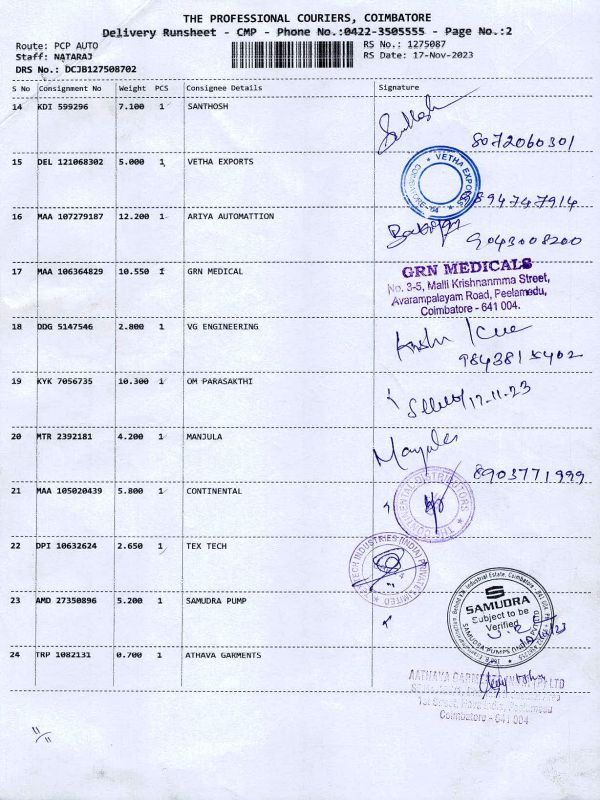 THE PROFESSIONAL COURIERS, COIMBATORE
Delivery Runsheet - CMP - Phone No.:0422-3505555 - Page No.:2
Route: PCP AUTO
Staff: NATARAJ
DRS No.: DCJB127508702
RS No.: 1275087
RS Date: 17-Nov-2023
S No Consignment No Weight PCS Consignee Details Signature
14 KDI 599296 7.100 1 SANTHOSH
Santhosh
8072060301
15 DEL 121068302 5.000 1 VETHA EXPORTS
VETHA EXPORTS
COIMBATORE
9894747914
16 MAA 107279187 12.200 1 ARIYA AUTOMATTION
9043008200
17 MAA 106364829 10.550 1 GRN MEDICAL
GRN MEDICALS
No. 3-5, Malli Krishnanmma Street,
Avarampalayam Road, Peelamedu,
Coimbatore - 641 004.
18 DDG 5147546 2.800 1 VG ENGINEERING
19 KYK 7056735 10.300 1 OM PARASAKTHI
17-11-23
20 MTR 2392181 4.200 1 MANJULA
Manjula
8903771999
21 MAA 105020439 5.800 1 CONTINENTAL
DISTRIBUTORS
22 DPI 10632624 2.650 1 TEX TECH
TEX TECH INDUSTRIES (INDIA) PRIVATE LIMITED
23 AMD 27350896 5.200 1 SAMUDRA PUMP
SAMUDRA
Subject to be
Verified
24 TRP 1082131 0.700 1 ATHAVA GARMENTS
1st Street,
Coimbatore - 641 004